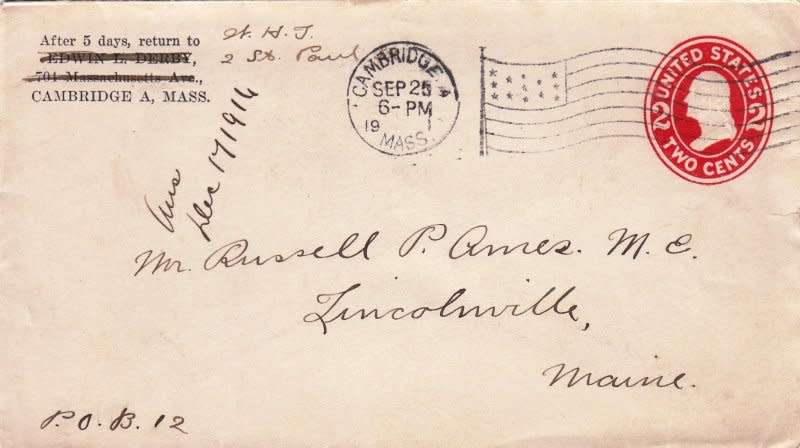 After 5 days, return to
EDWIN L. DERBY,
704 Massachusetts Ave.,
CAMBRIDGE A, MASS.
W. H. J.
2 St. Paul
CAMBRIDGE A
SEP 25
6-PM
19
MASS.
UNITED STATES
2 2
TWO CENTS
Ans
Dec 17 1914
Mr. Russell P. Ames. M. C.
Lincolnville,
Maine.
P.O.B. 12